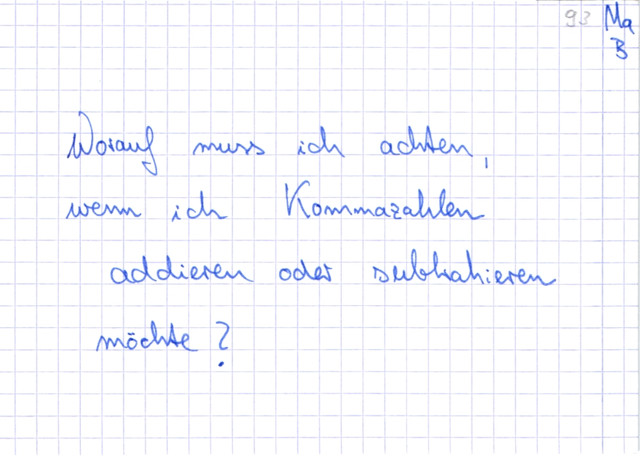 93 Ma
B
Worauf muss ich achten,
wenn ich Kommazahlen
addieren oder subtrahieren
möchte?